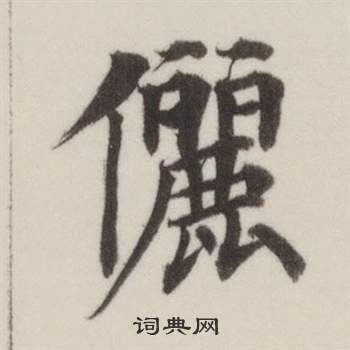 儷
词典网